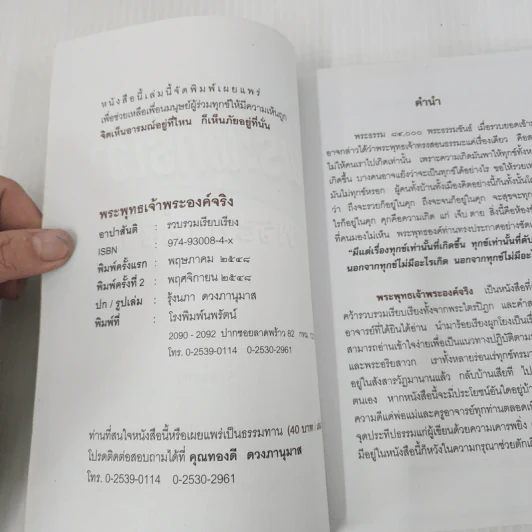 หนังสือเล่มนี้จัดพิมพ์เผยแพร่
เพื่อช่วยเหลือเพื่อนมนุษย์ผู้ร่วมทุกข์ให้มีความเห็นถูก
จิตเห็นอารมณ์อยู่ที่ไหน ก็เห็นภัยอยู่ที่นั่น
พระพุทธเจ้าพระองค์จริง
อาปาสันติ : รวบรวมเรียบเรียง
ISBN : 974-93008-4-x
พิมพ์ครั้งแรก : พฤษภาคม ๒๕๔๘
พิมพ์ครั้งที่ 2 : พฤศจิกายน ๒๕๔๘
ปก / รูปเล่ม : รุ้งนภา ดวงภานุมาส
พิมพ์ที่ : โรงพิมพ์นพรัตน์
2090 - 2092 ปากซอยลาดพร้าว 82
โทร. 0-2539-0114 0-2530-2961
ท่านที่สนใจหนังสือนี้หรือเผยแพร่เป็นธรรมทาน (40 บาท
โปรดติดต่อสอบถามได้ที่ คุณทองดี ดวงภานุมาส
โทร. 0-2539-0114 0-2530-2961
คำนำ
พระธรรม ๘๔,๐๐๐ พระธรรมขันธ์ เมื่อรวบยอดเข้า
อาจกล่าวได้ว่าพระพุทธเจ้าทรงสอนธรรมะแค่เรื่องเดียว คือ
ไม่ให้คนเราไปเกิดเท่านั้น เพราะความเกิดมันพาให้ทุกข์ทั้ง
เกิดขึ้น บางคนอาจแย้งว่าจะเป็นทุกข์ได้อย่างไร ขอให้รวย
มันไม่ทุกข์หรอก ผู้คนทั้งบ้านทั้งเมืองคิดอย่างนี้กันทั้งนั้น
ว่า ถึงจะรวยก็อยู่ในคุก ถึงจะจนก็อยู่ในคุก จะสุขจะทุกข์
ไรก็อยู่ในคุก คุกคือความเกิด แก่ เจ็บ ตาย สิ่งนี้คือห้อง
ที่คนมองไม่เห็น พระพุทธองค์ท่านทรงประกาศอย่างชัด
"มีแต่เรื่องทุกข์เท่านั้นที่เกิดขึ้น ทุกข์เท่านั้นที่ดับ
นอกจากทุกข์ไม่มีอะไรเกิด นอกจากทุกข์ไม่มีอะไร
พระพุทธเจ้าพระองค์จริง เป็นหนังสือที่
คว้ารวบรวมเรียบเรียงทั้งจากพระไตรปิฎก และคำ
อาจารย์ที่ได้ยินได้อ่าน นำมาร้อยเรียงผูกโยงเป็น
สามารถอ่านเข้าใจง่ายเพื่อเป็นแนวทางปฏิบัติตาม
และพระอริยสาวก เราทั้งหลายร่อนเร่ทุกข์ทรมา
อยู่ในสังสารวัฏมานานแล้ว กลับบ้านเสียที ไป
ตนเอง หากหนังสือนี้จะมีประโยชน์อันใดอยู่บ้าง
ความดีแด่พ่อแม่และครูอาจารย์ทุกท่านตลอด
จุดประทีปธรรมแก่ผู้เขียนด้วยความเคารพยิ่ง
มีอยู่ในหนังสือนี้ก็หวังในความกรุณาช่วยตักเตือน